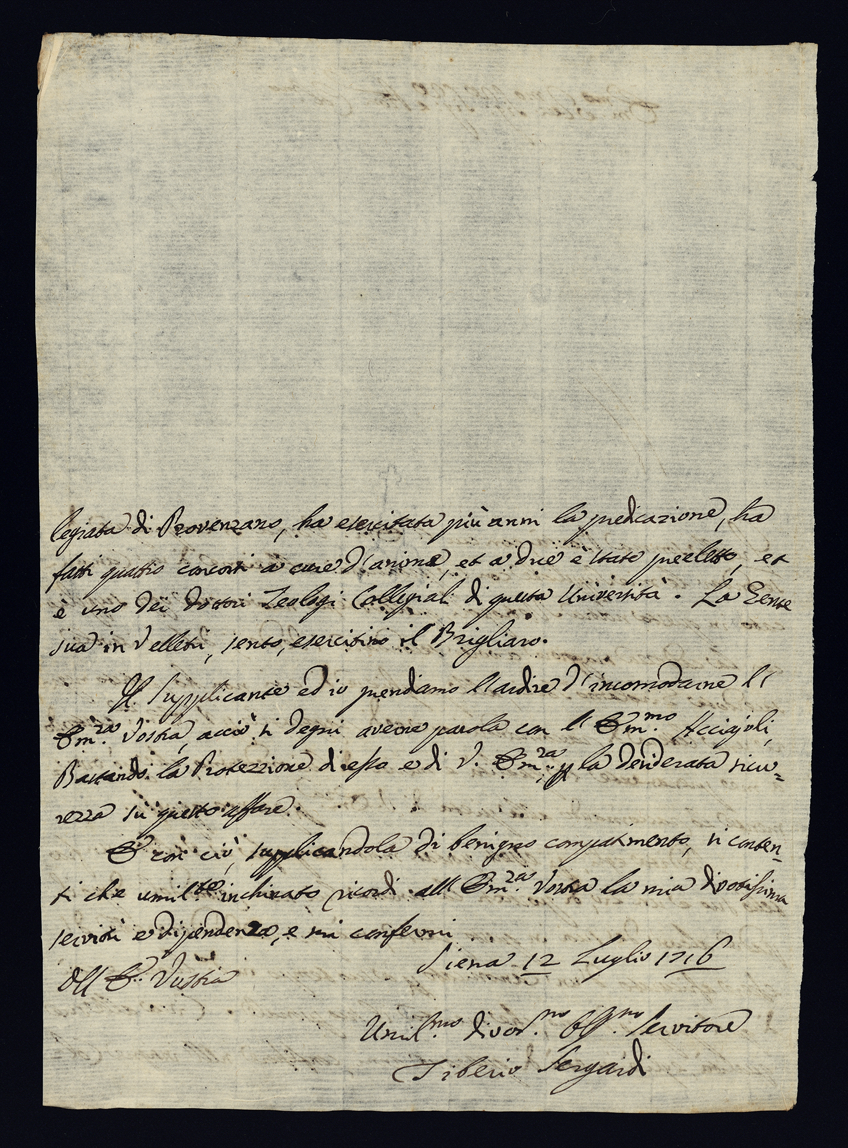 legiata di Provenzano, ha esercitata più anni la predicazione, ha
fatti quattro concorsi a cure d'anime, et a due è stato prescelto, et
è uno dei dottori Teologi Collegiali di questa Università. La Gente
sua in Velletri, sento, esercitino il
Il Supplicante ed io prendiamo l'ardire d'incomodarne l'
Em.za Vostra, acciò si degni averne parola con l'Em.mo Acciajoli,
Bastando la Protezzione di esso e di V. Em.za p la desiderata sicu-
rezza sù questo affare.
E con ciò, supplicandola di benigno compatimento, si conten-
ti che umil.te inchinato ricordi all'Em.za Vostra la mia divotissima
servitù e dipendenza, e mi confermi
Dell'E. Vostra
Siena 12 Luglio 1716
Umil.mo divot.mo Obb.mo Servitore
Tiberio Sergardi